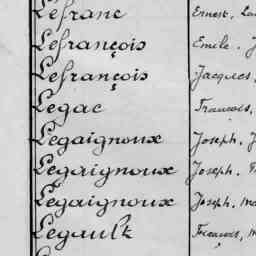 Lefranc Ernest,
Lefrançois Emile.
Lefrançois Jacques,
Legac Francois,
Legaignoux Joseph,
Legaignoux Joseph.
Legaignoux Joseph,
Legault Francois,